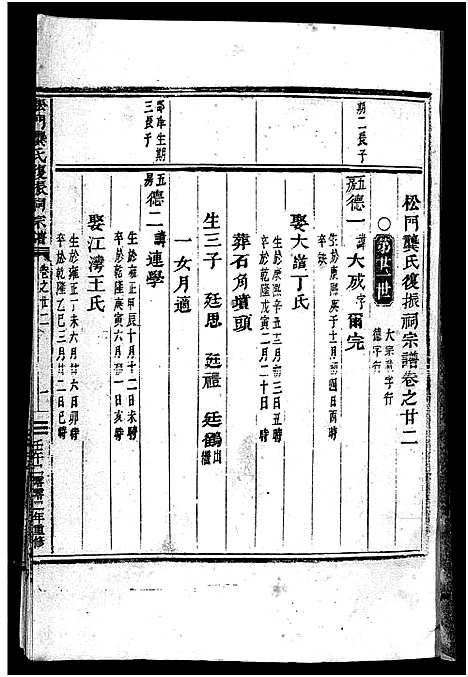 松門龔氏復振祠宗譜卷之廿二
大宗諱字行
德字行
第廿一世
期二長子
五房德一諱大成字爾完
生於康熙庚子十一月初四日酉時
卒缺
娶大道丁氏
生於康熙辛丑三月初三日丑時
卒於乾隆戊寅二月二十日酉時
葬石角墳頭
生三子 廷思 廷禮 廷鶴出繼
一女月適
五房德二諱連學
生於雍正甲辰十月十二日未時
卒於乾隆庚寅六月初一日亥時
娶江灣王氏
生於雍正丁未六月廿六日時
卒於乾隆乙巳三月廿二日巳時
松門龔氏復振祠宗譜
卷之廿二
一
壬午二零零二年重修